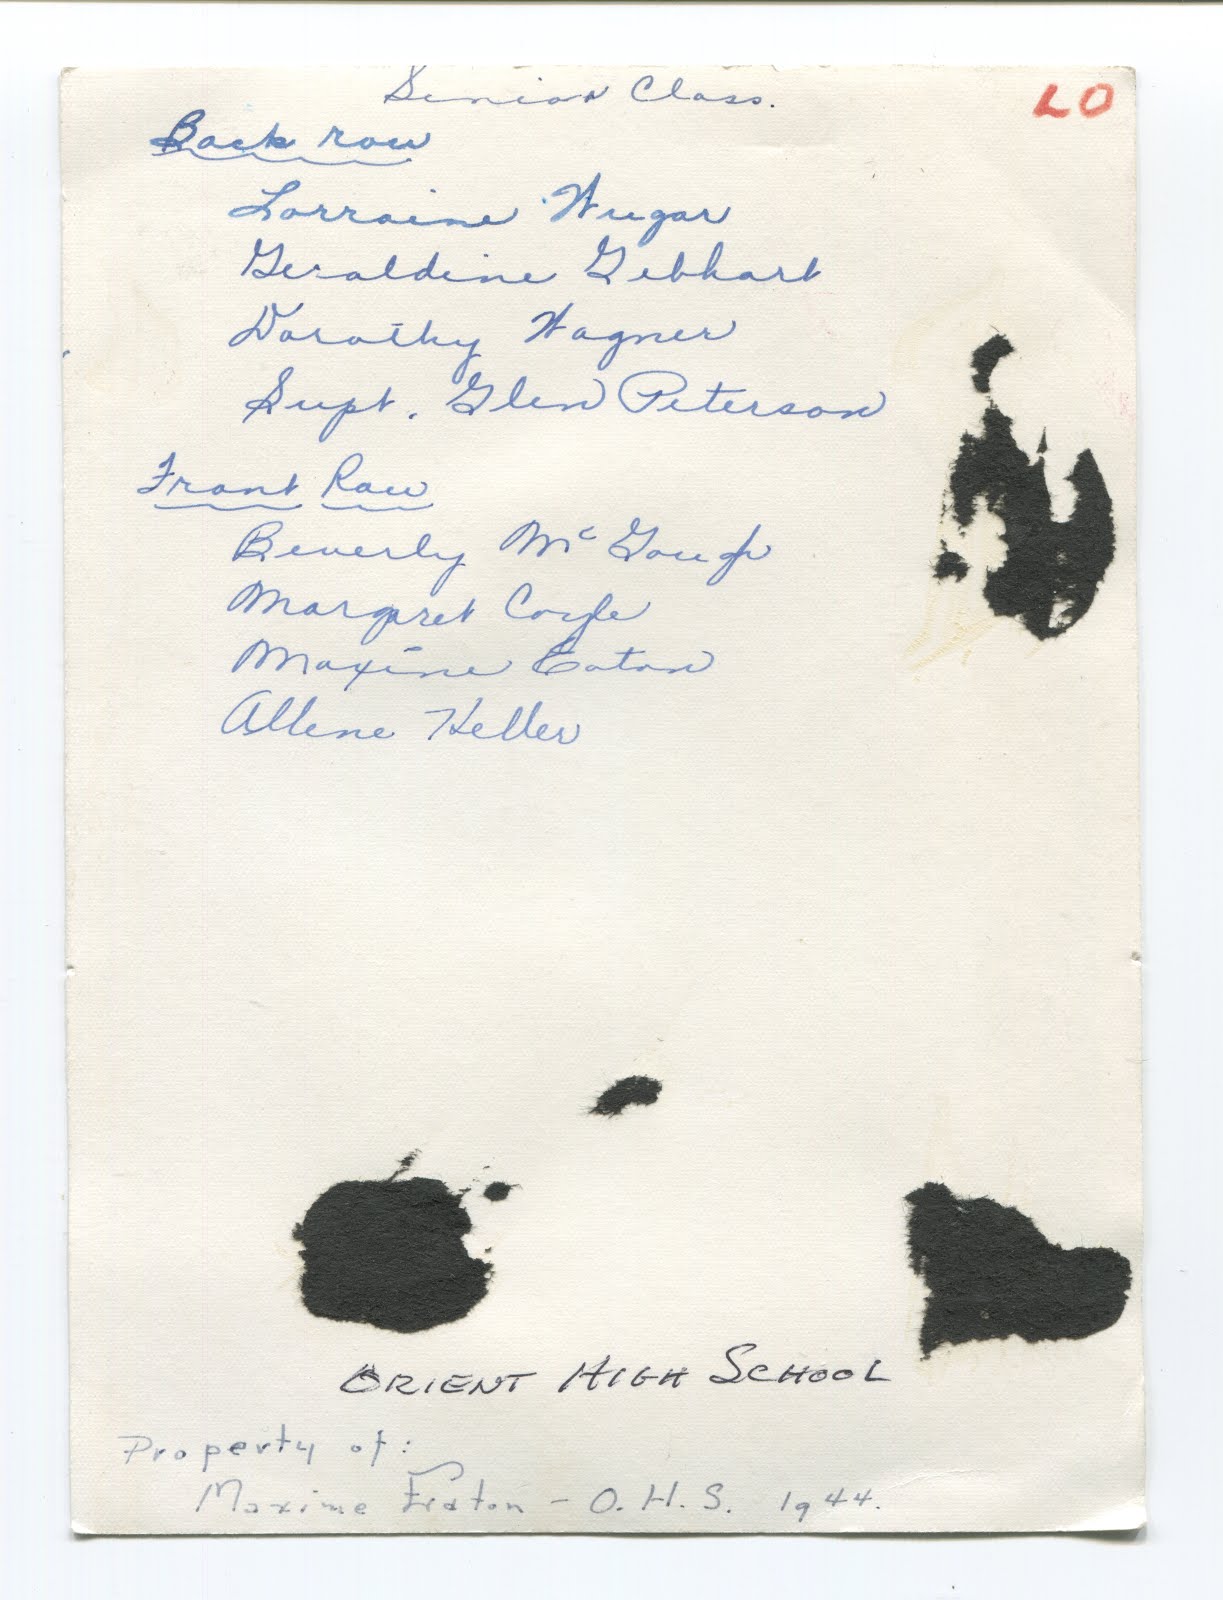 Senior Class.
LO
Back row
Lorraine Wugar
Geraldine Gebhart
Dorothy Wagner
Supt. Glen Peterson
Front Row
Beverly Mc Gough
Margaret Coyle
Maxine Eaton
Allene Heller
ORIENT HIGH SCHOOL
Property of:
Maxine Eaton - O.H.S. 1944.